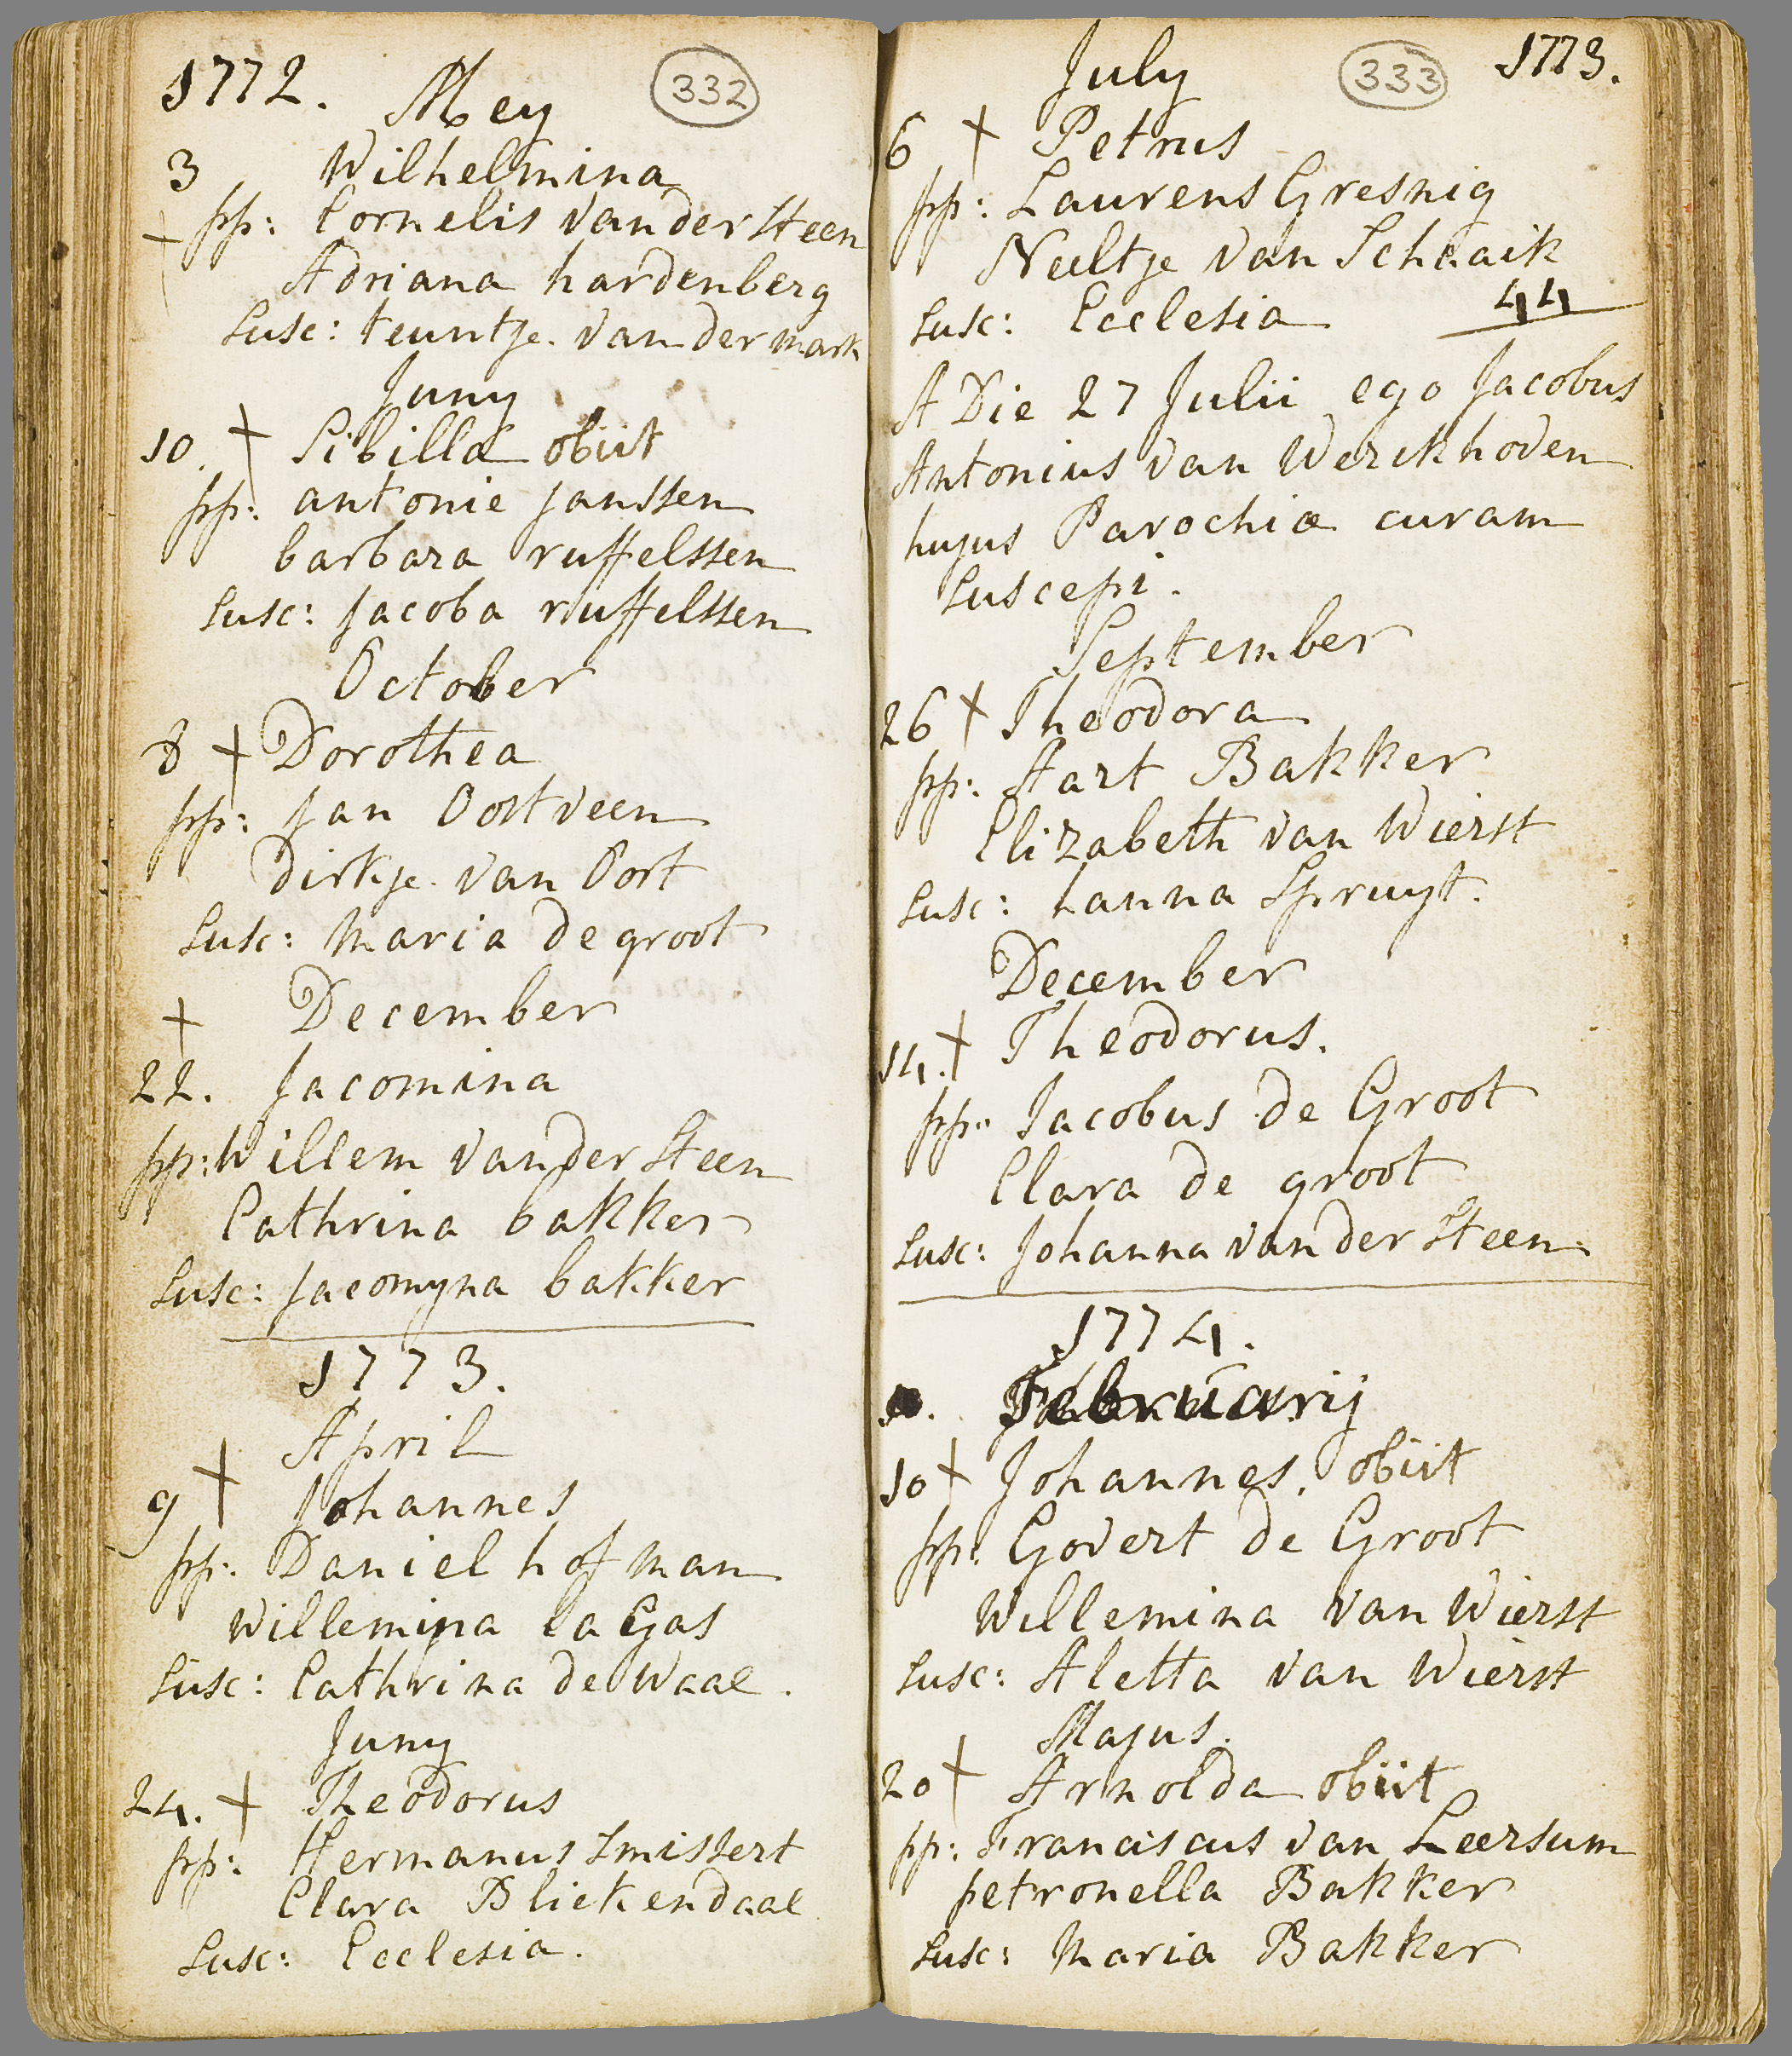 1772. Mey 332
3 Wilhelmina
pp: Cornelis van der Steen
Adriana hardenberg
Susc: teuntje. van der mark
Juny
10. + Sibilla obiit
pp: antonie Janssen
barbara ruffelssen
Susc: Jacoba ruffelssen
October
8 + Dorothea
pp: Jan Oostveen
Dirkje. van Oort
Susc: Maria de groot
+ December
22. Jacomina
pp: Willem van der Steen
Cathrina bakker
Susc: Jacomyna bakker
1773.
April
9 + Johannes
pp: Daniel hofman
Willemina la Gas
Susc: Cathrina de Waal.
Juny
24. + Theodorus
pp: Hermanus Smissert
Clara Bliekendaal
Susc: Ecclesia.
July 333 1773.
6 + Petrus
pp: Laurens Gresnig
Neeltje van Schaaik
Susc: Ecclesia 44
A Die 27 Julii ego Jacobus
Antonius van Werckhoven
hujus Parochiæ curam
Suscepi.
September
26 + Theodora
pp: Aart Bakker
Elizabeth van Wierst
Susc: hanna Spruyt.
December
14. + Theodorus.
pp: Jacobus de Groot
Clara de groot
Susc: Johanna van der Steen.
1774.
Februarij
10 + Johannes, obiit
pp: Govert de Groot
Willemina van Wierst
Susc: Aletta van Wierst
Majus.
20 + Arnolda obiit
pp: Franciscus van Leersum
petronella Bakker
Susc: Maria Bakker